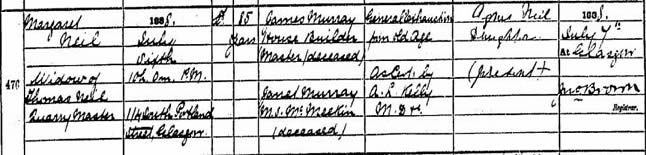 Margaret
Neil
476
Widow of
Thomas Neil
Quarry Master
1888.
July
Sixth
10h. 0m. P.M.
114 South Portland
Street, Glasgow
85
years
James Murray
House Builder
Master (deceased)
Janet Murray
M.S. McMeekin
(deceased)
General Exhaustion
from old Age
As Cert. by
A. L. Kelly
M.D.
Agnes Neil
Daughter
(present)
1888.
July 7th
At Glasgow
Registrar.